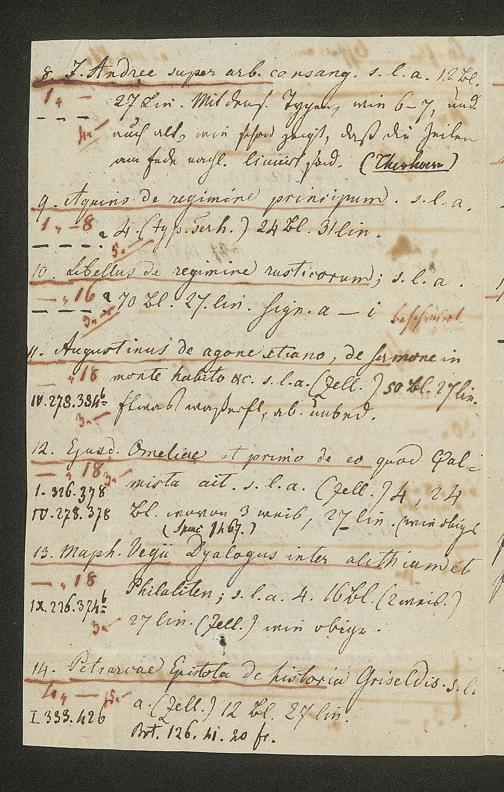 8. J. Andree super arb. consang. s. l. a. 12 Bl.
1 " —
27 Lin. Mit denſ. Typen, wie 6–7, und
4
auch alt, wie ſchon zeigt, daß die Zeilen
am Ende nicht liniirt ſind. (Therhoern)
9. Aquino de regimine principum. s. l. a.
1 " – 8
4. (typ. Terh.) 24 Bl. 31 lin.
5
10. Libellus de regimine rusticorum; s. l. a.
— " 16
70 Bl. 27. lin. Sign. a — i beschädigt
3
11. Augustinus de agone xtiano, de sermone in
— " 18
monte habito &c. s. l. a. (Zell.) 50 Bl. 27 lin.
IV. 278. 384
3
etwas waſſerfl., ab. unbed.
12. Ejusd. Omeliae et primo de eo quod Psal-
— " 18
3
mista ait. s. l. a. (Zell.) 4. 24
I. 326. 378
IV. 278. 378
Bl. wovon 3 weiß, 27 lin. (wie obige
1467.)
13. Maph. Vegii Dyalogus inter alithiam et
— " 18
Philaliten; s. l. a. 4. 16 Bl. (2 weiß.)
IX. 226. 374
3
27 lin. (Zell.) wie obige.
14. Petrarcae Epistola de historia Griseldis. s. l.
a. (Zell.) 12 Bl. 27 lin.
I. 333. 426
Brt. 126. 41. 20 fr.